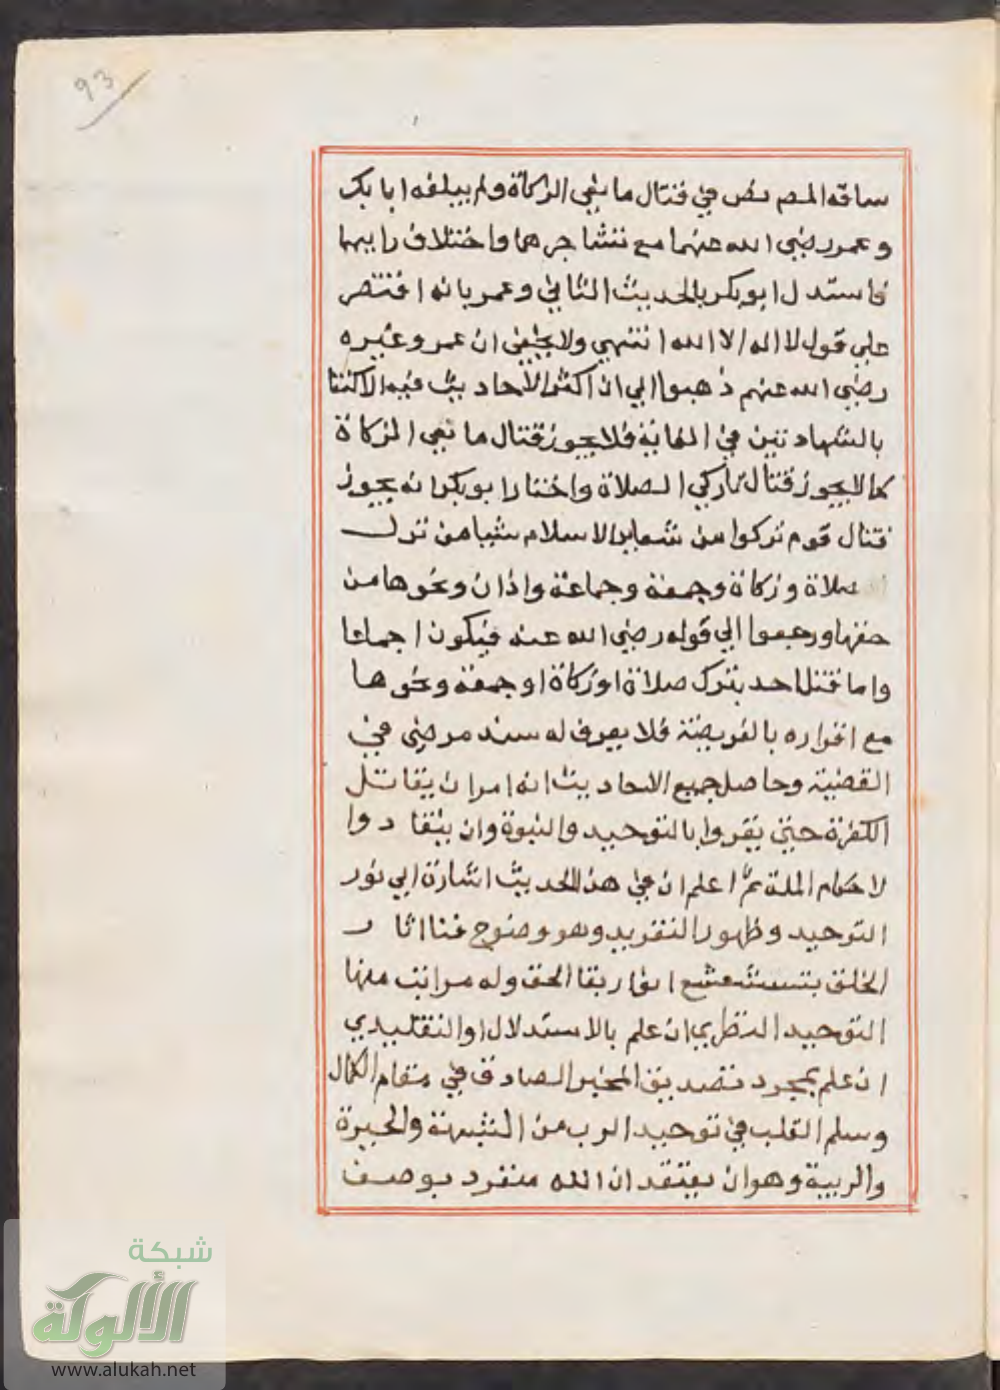 93
ساقه المص نص في قتال مانعي الزكاة ولم يبلغه ابا بكر
وعمر رضي الله عنهما مع تشاجرهما واختلاف راييهما
فاستدل ابو بكر بالحديث الثاني وعمر بانه اقتصر
علي قول لا اله الا الله انتهي ولا يخفي ان عمر وغيره
رضي الله عنهم ذهبوا الي ان اكثر الاحاديث فيه الاكتفا
بالشهادتين في الغاية فلا يجوز قتال مانعي الزكاة
كما لا يجوز قتال تاركي الصلاة واختار ابو بكر انه يجوز
قتال قوم تركوا من شعاير الاسلام شيا من ترك
صلاة وزكاة وجمعة وجماعة واذان ونحوها من
حقها ورجعوا الي قوله رضي الله عنه فيكون اجماعا
واما قتل احد بترك صلاة او زكاة او جمعة ونحوها
مع اقراره بالفريضة فلا يعرف له سند مرضي في
القضية وحاصل جميع الاحاديث انه امر ان يقاتل
الكفرة حتي يقروا بالتوحيد والنبوة وان ينقادوا
لاحكام الملة ثم اعلم ان في هذا الحديث اشارة الي نور
التوحيد وظهور التفريد وهو وضوح فنا اثار
الخلق بتشعشع انوار بقا الحق وله مراتب منها
التوحيد النظري ان علم بالاستدلال او التقليدي
ان علم بمجرد تصديق المخبر الصادق في مقام الكمال
وسلم القلب في توحيد الرب من الشبهة والحيرة
والريبة وهو ان يعتقد ان الله منفرد بوصف
شبكة
الألوكة
www.alukah.net